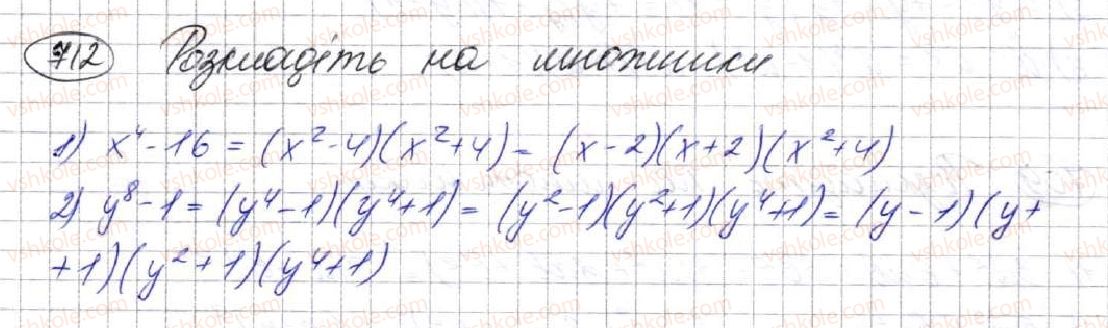 712 Розкладіть на множники
1) x⁴-16 = (x²-4)(x²+4) = (x-2)(x+2)(x²+4)
2) y⁸-1 = (y⁴-1)(y⁴+1) = (y²-1)(y²+1)(y⁴+1) = (y-1)(y+
+1)(y²+1)(y⁴+1)